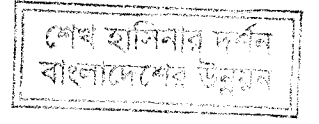 শেখ হাসিনার দর্শন
বাংলাদেশের উন্নয়ন